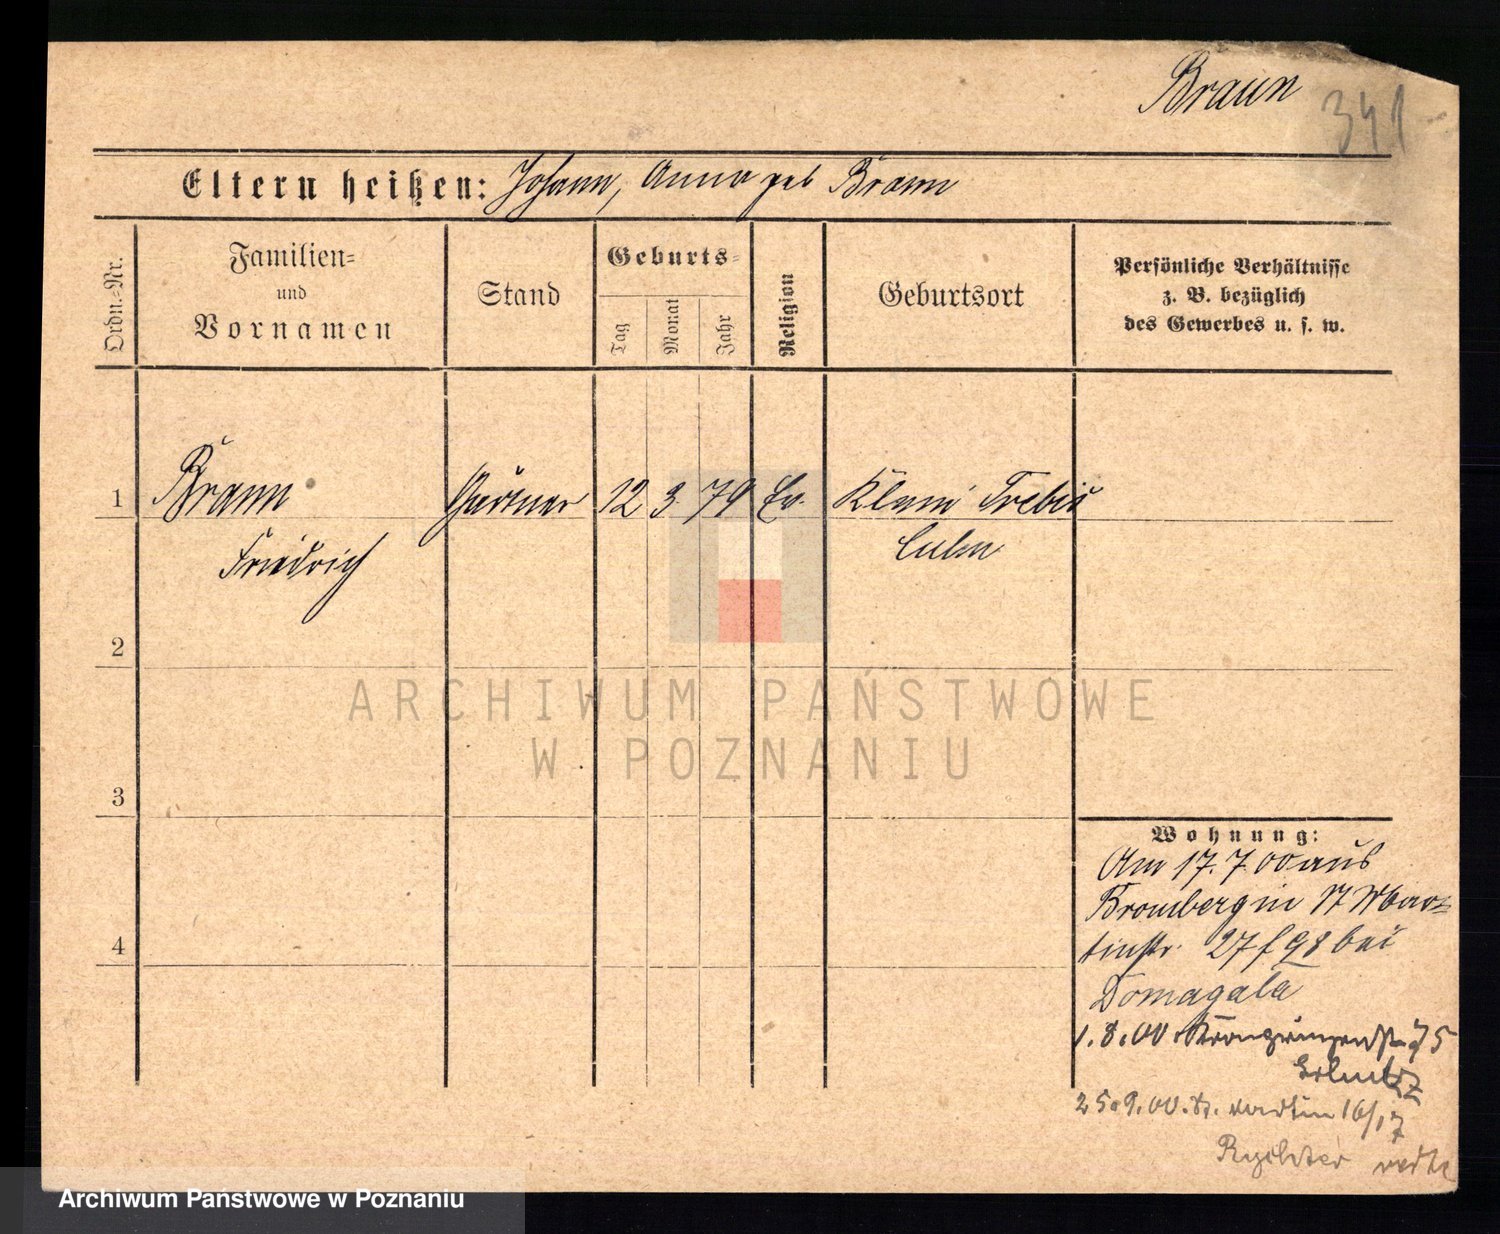 Braun
341
Eltern heißen: Johann, Anna geb Braun
Ordn.-Nr.
Familien-
und
Vornamen
Stand
Geburts-
Tag
Monat
Jahr
Religion
Geburtsort
Persönliche Verhältnisse
z. B. bezüglich
des Gewerbes u. s. w.
1
Braun Gärtner 12 3. 79 Ev. Klein Trebis
Friedrich
Culm
2
ARCHIWUM PAŃSTWOWE
W POZNANIU
3
4
Wohnung:
Am 17. 7. 00 aus
Bromberg in St
27 f 98 bei
Domagala
1. 8. 00 Kronprinzenstr 75
25. 9. 00. 16/17
Archiwum Państwowe w Poznaniu